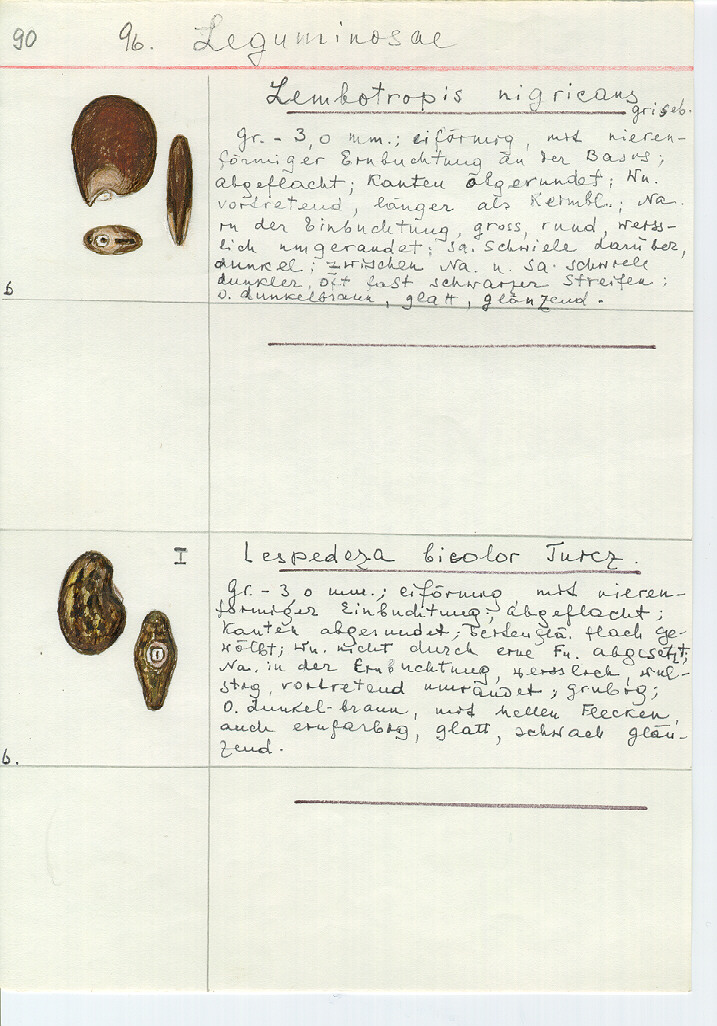 90 96. Leguminosae
Lembotropis nigricans
griseb.
Gr. - 3,0 mm.; eiförmig, mit nieren-
förmiger Einbuchtung an der Basis;
abgeflacht; Kanten abgerundet; Wu.
vortretend, länger als Keimbl.; Na.
in der Einbuchtung, gross, rund, weiss-
lich umgerandet; Sa. Schwiele darüber,
dunkel; zwischen Na. u. Sa. schwiele
dunkler, oft fast schwarzer Streifen;
O. dunkelbraun, glatt, glänzend.
6
I
Lespedeza bicolor Turcz.
Gr. - 3,0 mm.; eiförmig mit nieren-
förmiger Einbuchtung; abgeflacht;
Kanten abgerundet; flach ge-
wölbt; Wu. nicht durch eine Fu. abgesetzt;
Na. in der Einbuchtung, weisslich, wul-
stig, vortretend umrandet; grubig;
O. dunkel-braun, mit hellen Flecken,
auch einfarbig, glatt, schwach glän-
zend.
6.